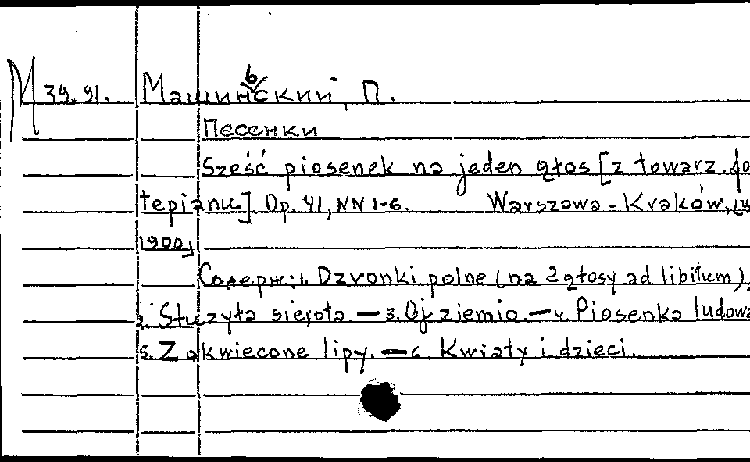 М 39.91. Машиньский, П.
Песенки
Sześć piosenek na jeden głos [z towarz. fo
tepianu]. Op. 41, NN 1-6. Warszawa - Kraków,
1900,
Содерж: 1. Dzwonki polne (na 2 głosy ad libitum),
2. Służyła sierota. — 3. Oj ziemio. — 4. Piosenka ludowa
5. Zakwiecone lipy. — 6. Kwiaty i dzieci.